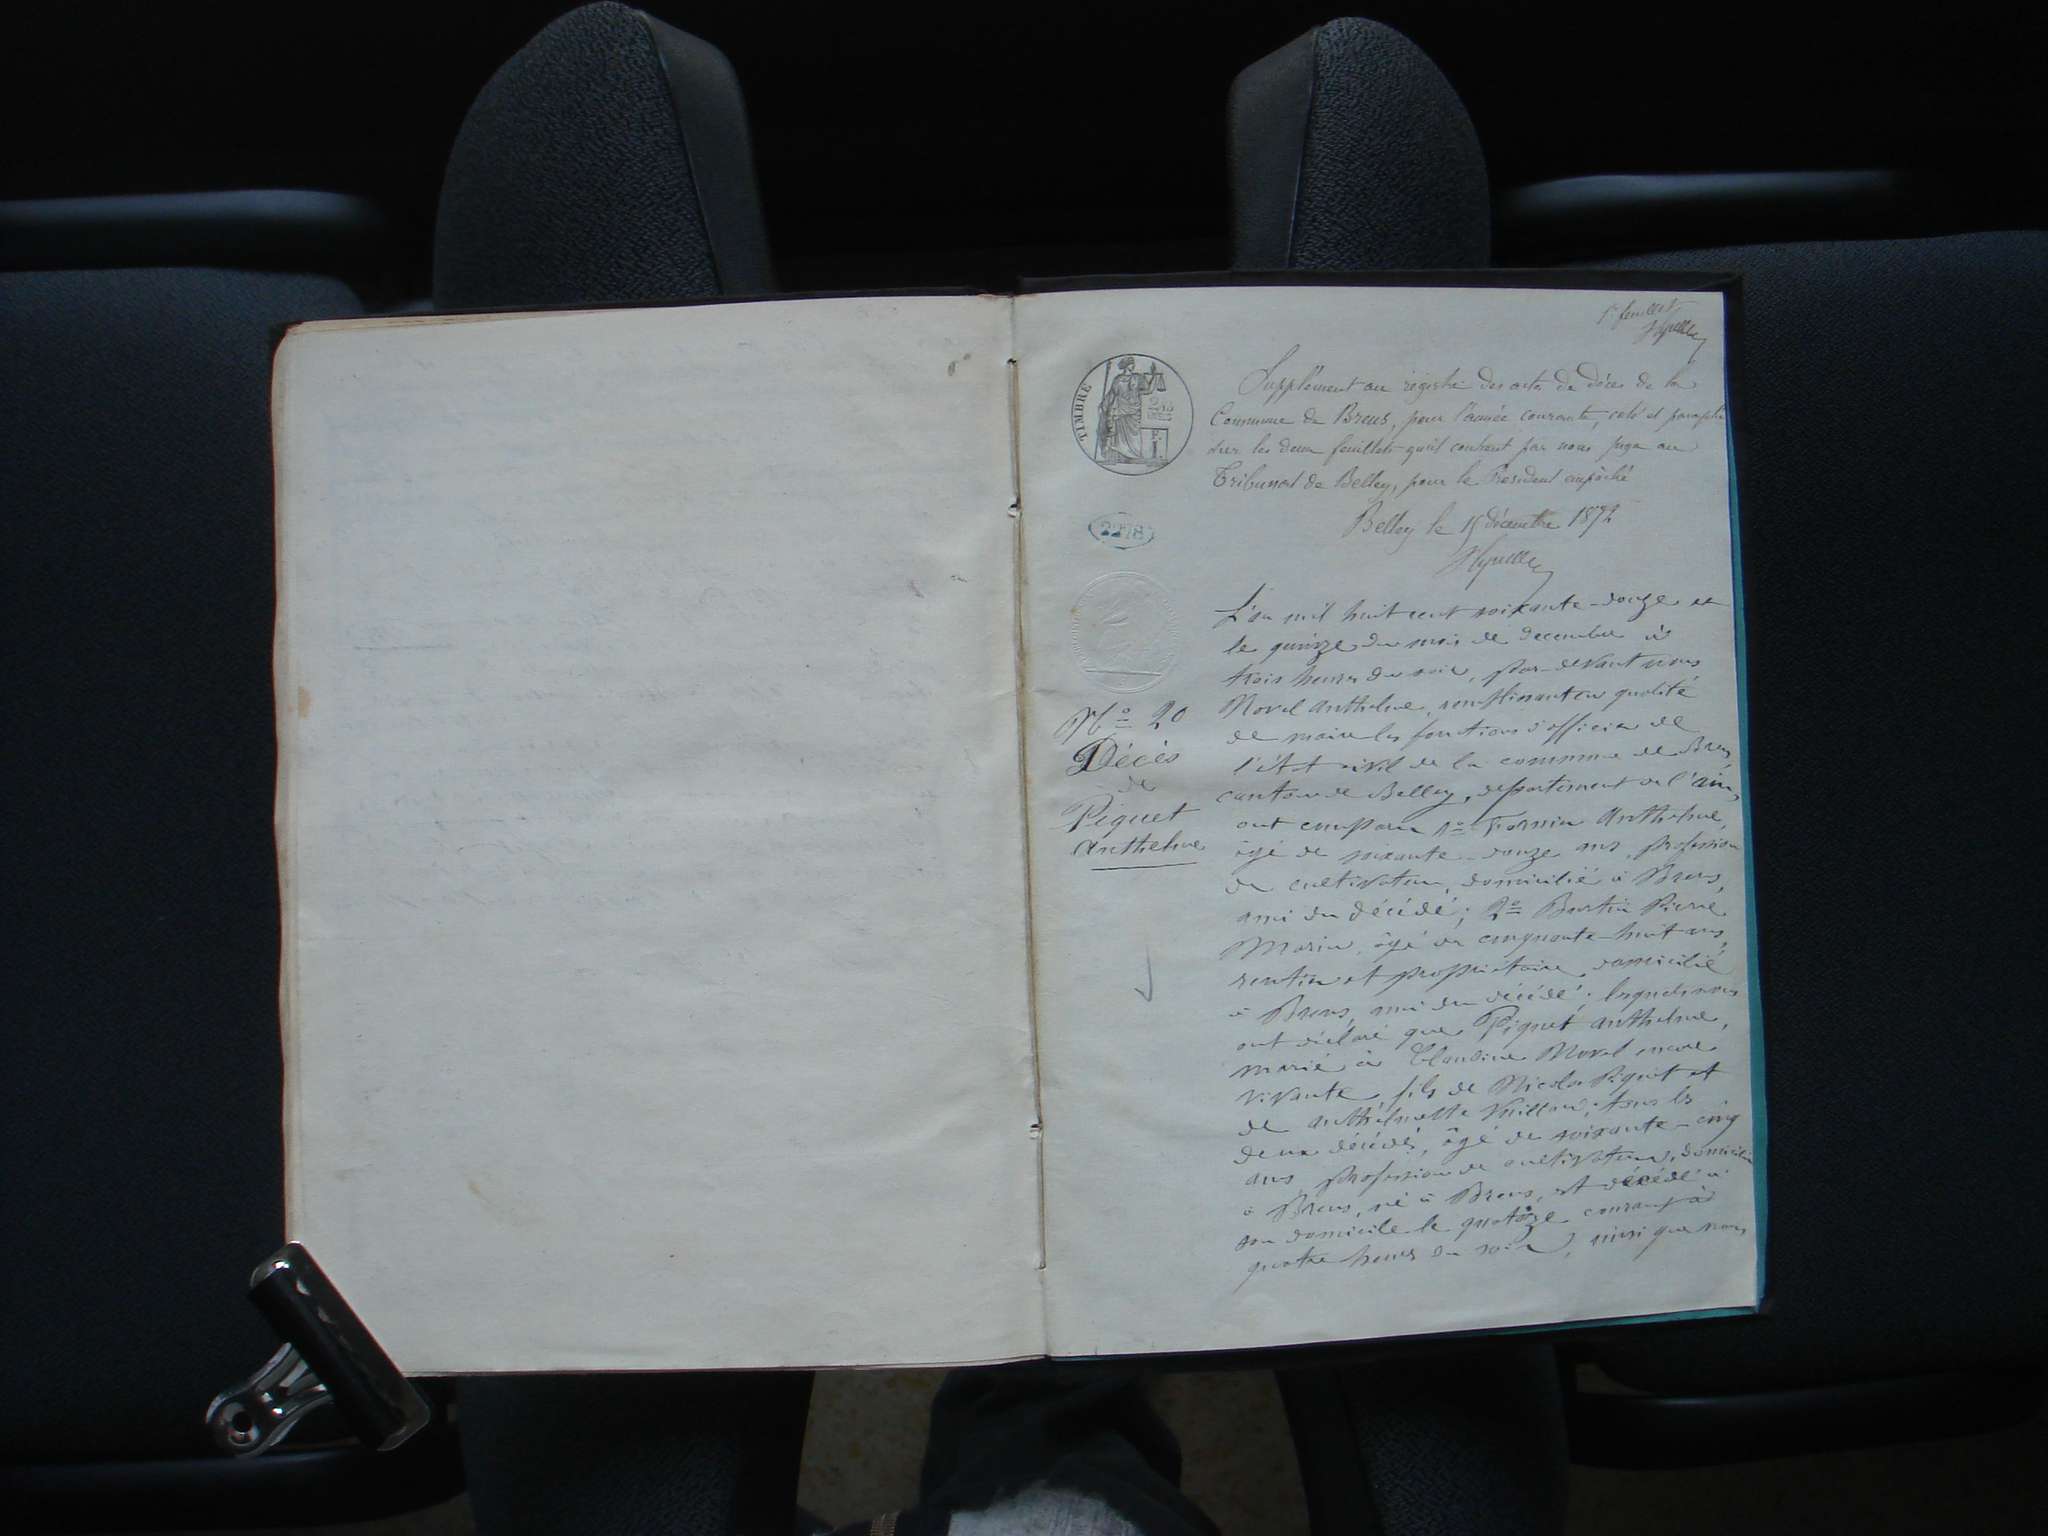 1er feuillet
TIMBRE
Supplément au régistre des actes de décès de la
Commune de Brens, pour l'année courante, coté et paraphé
sur les deux feuillets qu'il contient par nous juge au
Tribunal de Belley, pour le Président empêché
Belley le 15 décembre 1872
2218
L'an mil huit cent soixante-douze et
le quinze du mois de decembre à
trois heures du soir, par-devant nous
Morel anthelme, remplissant en qualité
de maire les fonctions d'officier de
l'état civil de la commune de Brens,
canton de Belley, département de l'ain,
ont comparu 1º anthelme,
âgé de soixante-douze ans, profession
de cultivateur, domicilié à Brens,
ami du décédé; 2º Bertin Pierre
Marin, âgé de cinquante-huit ans,
rentier et propriétaire, domicilié
à Brens, ami du décédé; lesquels nous
ont déclaré que Piguet anthelme,
marié à Claudine Morel encore
vivante, fils de Nicolas Piguet et
de anthelmette tous les
deux décédés, âgé de soixante-cinq
ans profession de cultivateur, domicilié
à Brens, né à Brens, est décédé à
son domicile le quatorze courant à
quatre heures du soir, ainsi que nous
Nº 20
Décès
de
Piguet
anthelme